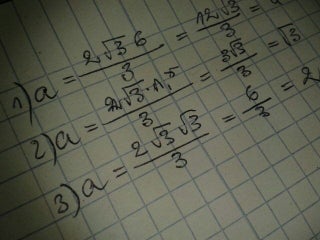 1) a = 2√3 6 / 3 = 12√3 / 3 =
2) a = 2√3 · 1,5 / 3 = 3√3 / 3 = √3
3) a = 2√3 √3 / 3 = 6 / 3 = 2